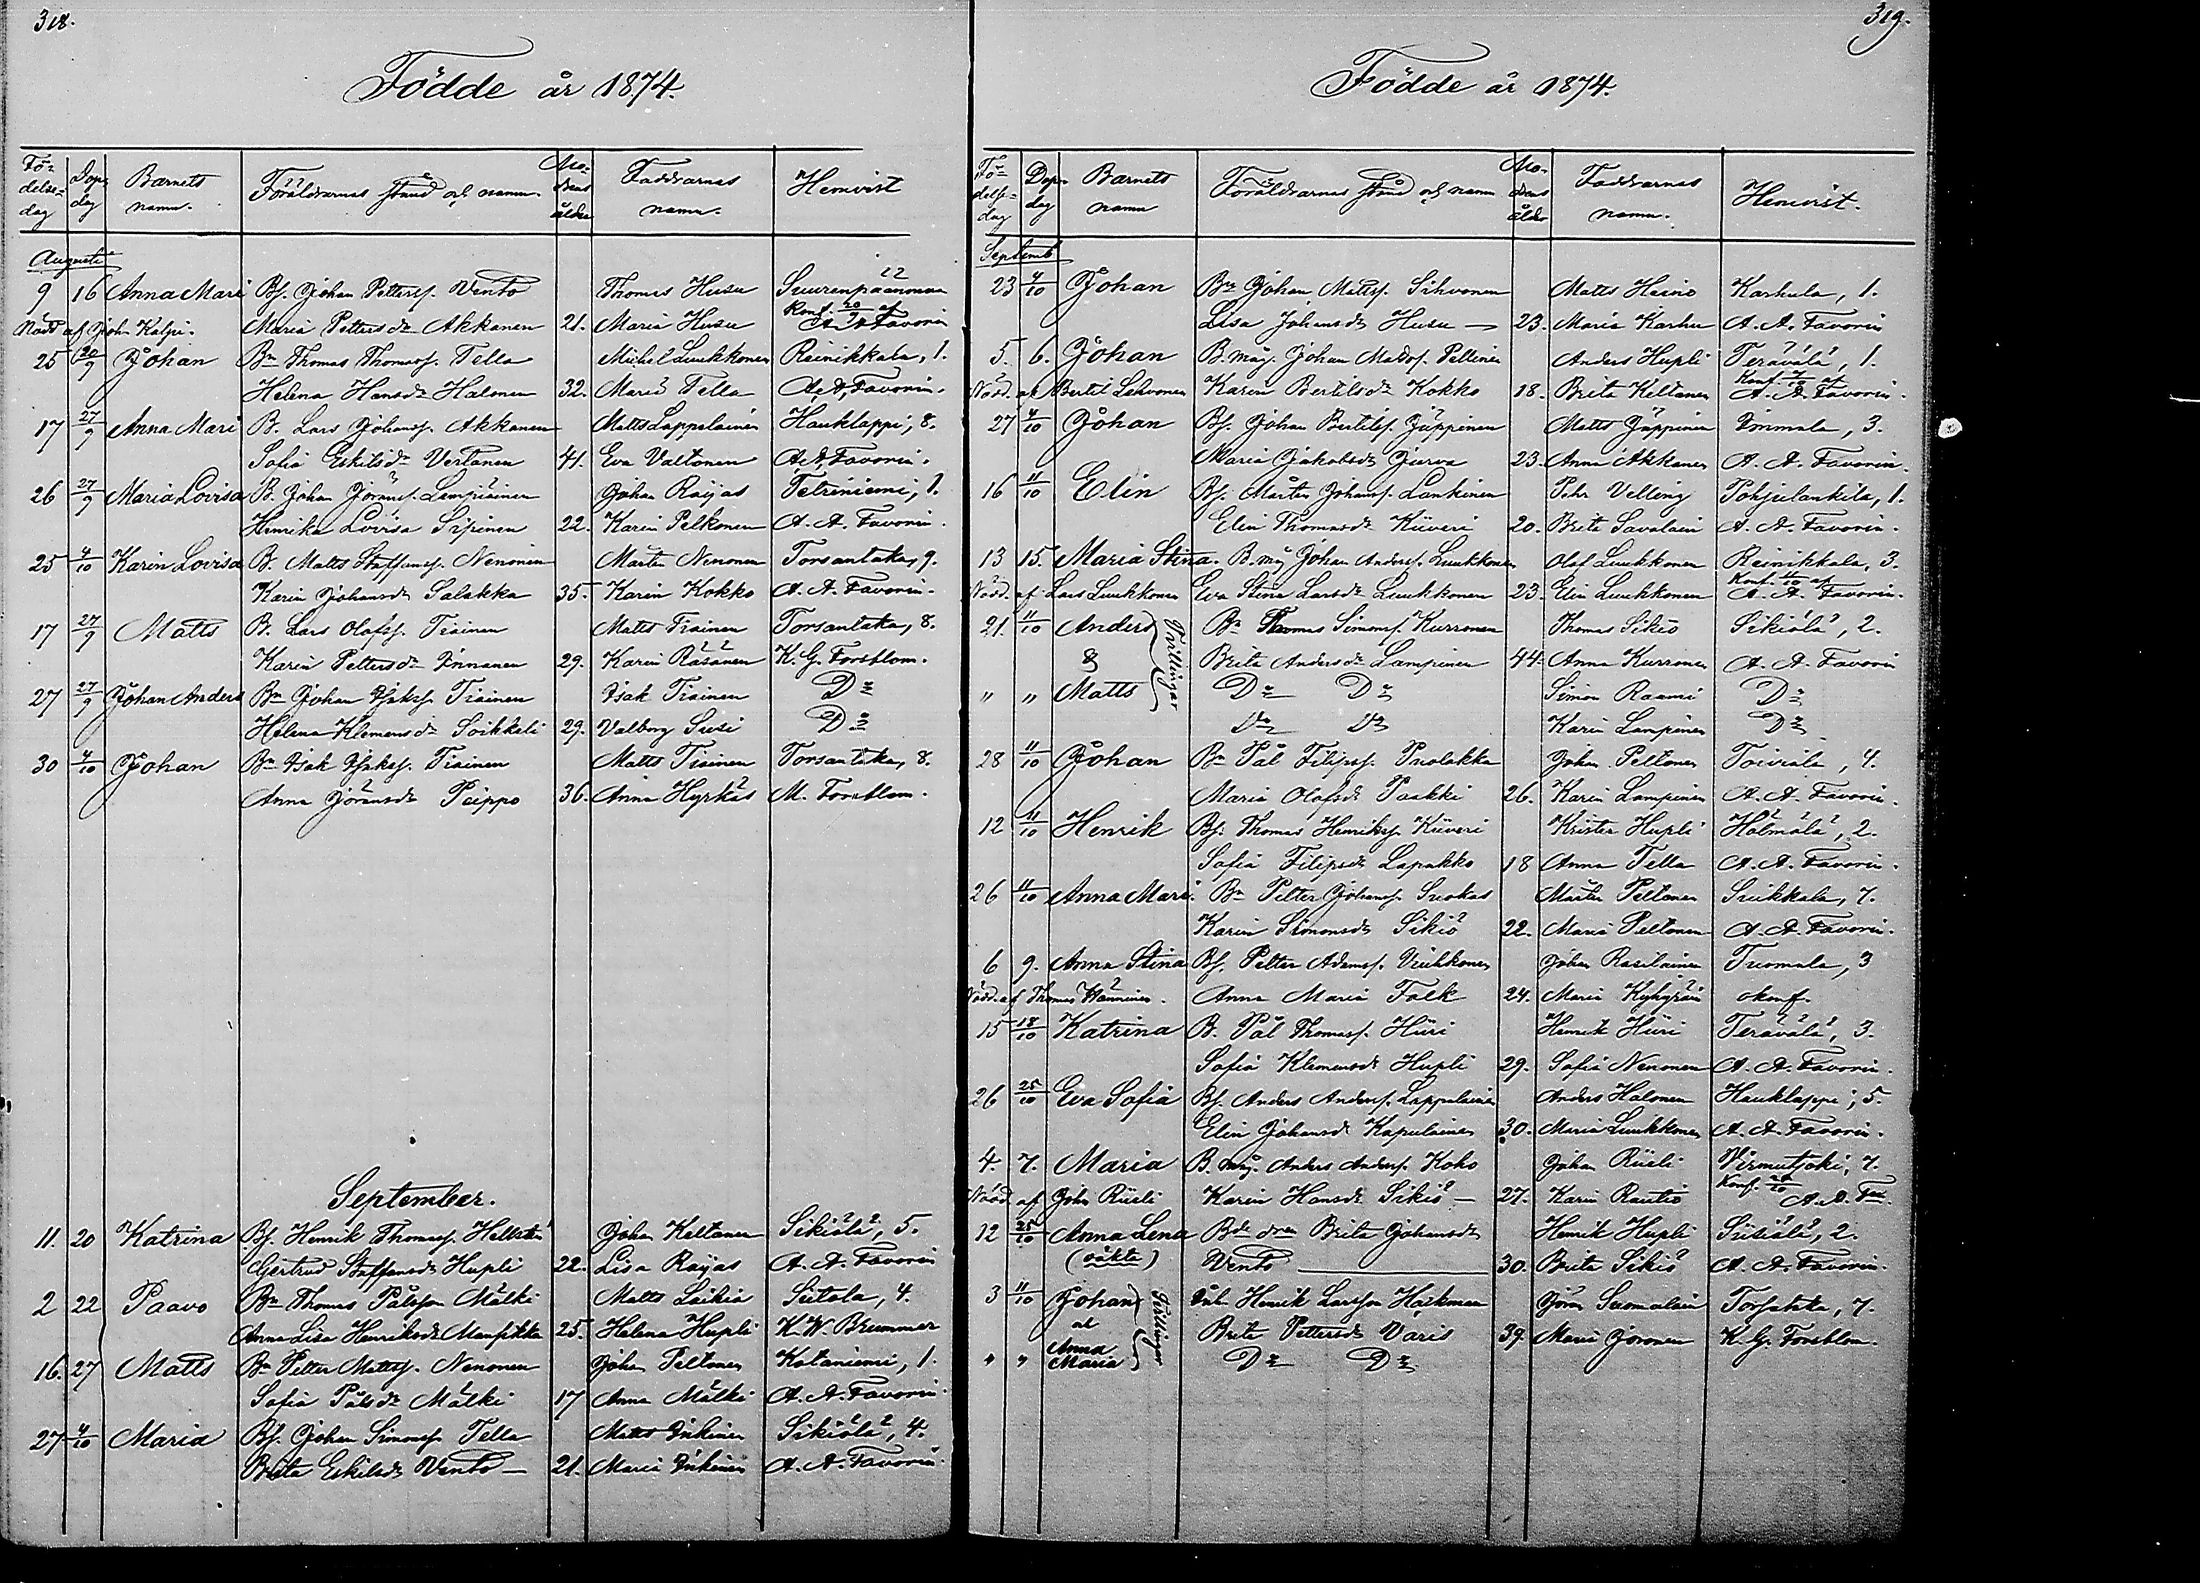 318.
Födde år 1874.
Fö-delse-dag Dop dag Barnets namn. Föräldrarnas stånd och namn. Mo-drens ålder Faddrarnas namn. Hemvist
Augusti
9 16 Anna Mari Bs. Johan Petterss. Vento Thomas Husu Suurenpäänmaa
Nödd. af Joh. Kalpi. Maria Pettersdr Akkanen 21. Maria Husu Konf. 20/9 af A. A. Favorin
25 20/9 Johan Bn Thomas Thomass. Tella Michel Luukkonen Reinikkala, 1.
Helena Hansdr Halonen 32. Maria Tella A. A. Favorin.
17 27/9 Anna Mari B. Lars Johanss. Akkanen Matts Lappalainen Hauklappi, 8.
Sofia Eskilsdr Vertanen 41. Eva Valtonen A. A. Favorin.
26 27/9 Maria Lovisa B. Johan Jöranss. Lampiainen Johan Raijas Tetriniemi, 1.
Henrika Lovisa Sipinen 22. Karin Pelkonen A. A. Favorin.
25 4/10 Karin Lovisa B. Matts Staffanss. Nenonen Martin Nenonen Torsantaka, 9.
Karin Johansdr Salakka 35. Karin Kokko A. A. Favorin.
17 27/9 Matts B. Lars Olofss. Tiainen Matts Tiainen Torsantaka, 8.
Karin Pettersdr Innanen 29. Karin Räsänen K. G. Forsblom.
27 27/9 Johan Anders Bn Johan Isakss. Tiainen Isak Tiainen Do
Helena Klemensdr Soikkeli 29. Valborg Susi Do
30 4/10 Johan Bn Isak Isakss. Tiainen Matts Tiainen Torsantaka, 8.
Anna Jöransdr Peippo 36. Anna Hyrkäs M. Forsblom.
September.
11. 20 Katrina Bs. Henrik Thomass. Hellsten Johan Keltanen Sikiälä, 5.
Gertrud Staffansdr Hupli 22. Lisa Raijas A. A. Favorin
2 22 Paavo Bn Thomas Pålsson Mälki Matts Laikia Sutola, 4.
Anna Lisa Henriksdr Mansikka 25. Helena Hupli K. W. Brummer
16. 27 Matts Bn Petter Mattss. Nenonen Johan Peltonen Kataniemi, 1.
Sofia Pålsdr Mälki 17 Anna Mälki A. A. Favorin.
27 4/10 Maria Bs. Johan Simonss. Tella Matts Inkinen Sikiälä, 4.
Brita Eskilsdr Vento 21. Maria Inkinen A. A. Favorin.
319.
Födde år 1874.
Fö-delse-dag Dop-dag Barnets namn Föräldrarnas stånd och namn Mo-drens ålder Faddrarnas namn. Hemvist.
Septemb.
23 4/10 Johan Bn Johan Mattss. Sihvonen Matts Heino Karhula, 1.
Lisa Johansdr Husu 23. Maria Karhu A. A. Favorin
5. 6. Johan B. måg. Johan Madss. Pellinen Anders Hupli Terävälä, 1.
Nödd. af Bertil Lehvonen Karin Bertilsdr Kokko 18. Brita Keltanen Konf. af A. A. Favorin.
27 4/10 Johan Bs. Johan Bertilss. Jäppinen Matts Jäppinen Immala, 3.
Maria Jakobsdr Jurva 23. Anna Akkanen A. A. Favorin.
16 11/10 Elin Bs. Mårten Johanss. Lankinen Pehr Velling Pohjelankila, 1.
Elin Thomasdr Kiiveri 20. Brita Savalain A. A. Favorin.
13 15. Maria Stina. B. måg Johan Anderss. Luukkonen Olof Luukkonen Reinikkala, 3.
Nödd. af Lars Luukkonen Eva Stina Larsdr Luukkonen 23. Elin Luukkonen Konf. 11/10 af A. A. Favorin.
21. 11/10 Anders Bn Thomas Simonss. Kurronen Thomas Sikiö Sikiälä, 2.
& Tvillingar Brita Andersdr Lampinen 44. Anna Kurronen A. A. Favorin
" " Matts Do Do Simon Raami Do
Do Do Karin Lampinen Do
28 11/10 Johan Bn Pål Filipss. Puolakka Johan Peltonen Toiviala, 4.
Maria Olofsdr Paakki 26. Karin Lampinen A. A. Favorin.
12 11/10 Henrik Bs. Thomas Henrikss. Kiiveri Krister Hupli Hälmälä, 2.
Sofia Filipsdr Lapakko 18 Anna Tella A. A. Favorin.
26 11/10 Anna Mari. Bn Petter Johanss. Suokas Martin Peltonen Suikkala, 7.
Karin Simonsdr Sikiö 22. Maria Peltonen A. A. Favorin.
6 9. Anna Stina Bs. Petter Adamss. Vauhkonen Johan Rasilainen Tuomala, 3
Nödd. af Thomas Hänninen. Anna Maria Falk 24. Maria okonf.
15 18/10 Katrina B. Pål Thomass. Hiiri Henrik Hiiri Terävälä, 3.
Sofia Klemensdr Hupli 29. Sofia Nenonen A. A. Favorin.
26 25/10 Eva Sofia Bs. Anders Anderss. Lappalainen Anders Halonen Hauklappi, 5.
Elin Johansdr Kapulainen 30. Maria Luukkonen A. A. Favorin.
4. 7. Maria B. måg. Anders Anderss. Koho Johan Rüsli Virmutjoki, 7.
Nödd af John Rüsli Karin Hansdr Sikiö 27. Karin Rautio Konf. A. A. Fav.
12 25/10 Anna Lena Bde dr Brita Johansdr Henrik Hupli Süsiälä, 2.
(oäkta) Vento 30. Brita Sikiö A. A. Favorin.
3 11/10 Johan Henrik Larsson Härkman Jöran Suomalain Torsataka, 7.
at Tvillingar Brita Pettersdr Väris 39. Maria Joronen K. G. Forsblom.
" " Anna Maria Do Do